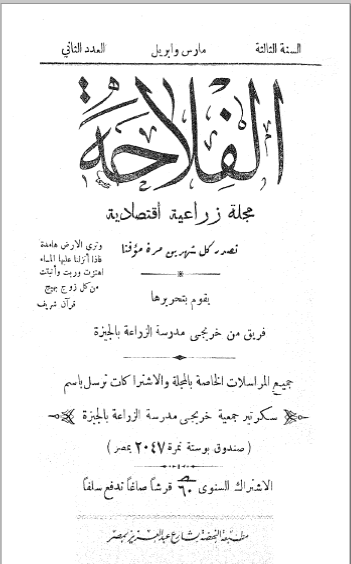 السنة الثالثة
مارس وابريل
العدد الثاني
الفلاحة
مجلة زراعية اقتصادية
تصدر كل شهرين مرة مؤقتا
وترى الارض هامدة
فاذا أنزلنا عليها الماء
اهتزت وربت وأنبتت
من كل زوج بهيج
قرآن شريف
يقوم بتحريرها
فريق من خريجى مدرسة الزراعة بالجيزة
جميع المراسلات الخاصة بالمجلة والاشتراكات ترسل باسم
سكرتير جمعية خريجى مدرسة الزراعة بالجيزة
( صندوق بوستة نمرة ٢٠٤٧ بمصر )
الاشتراك السنوى ٦٠ قرشاً صاغاً تدفع سلفاً
مطبعة النهضة بشارع عبد العزيز بمصر